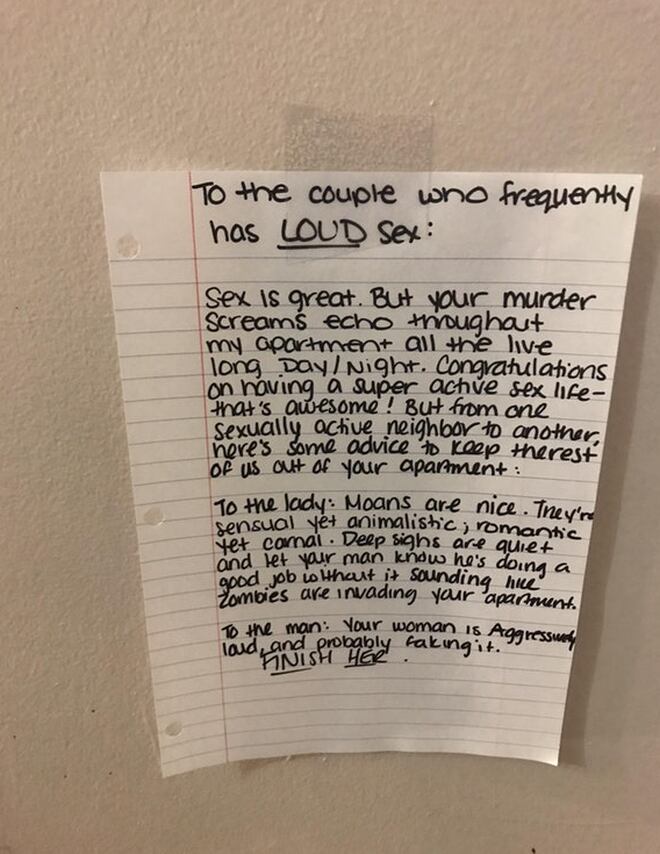 To the couple who frequently
has LOUD Sex:
Sex is great. But your murder
Screams echo throughout
my apartment all the live
long Day/Night. Congratulations
on having a super active sex life-
that's awesome! But from one
sexually active neighbor to another,
here's some advice to keep therest
of us out of your apartment:
To the lady: Moans are nice. They're
sensual yet animalistic; romantic
yet carnal. Deep sighs are quiet
and let your man know he's doing a
good job without it sounding like
zombies are invading your apartment.
To the man: Your woman is Aggressively
loud, and probably faking it.
FINISH HER.